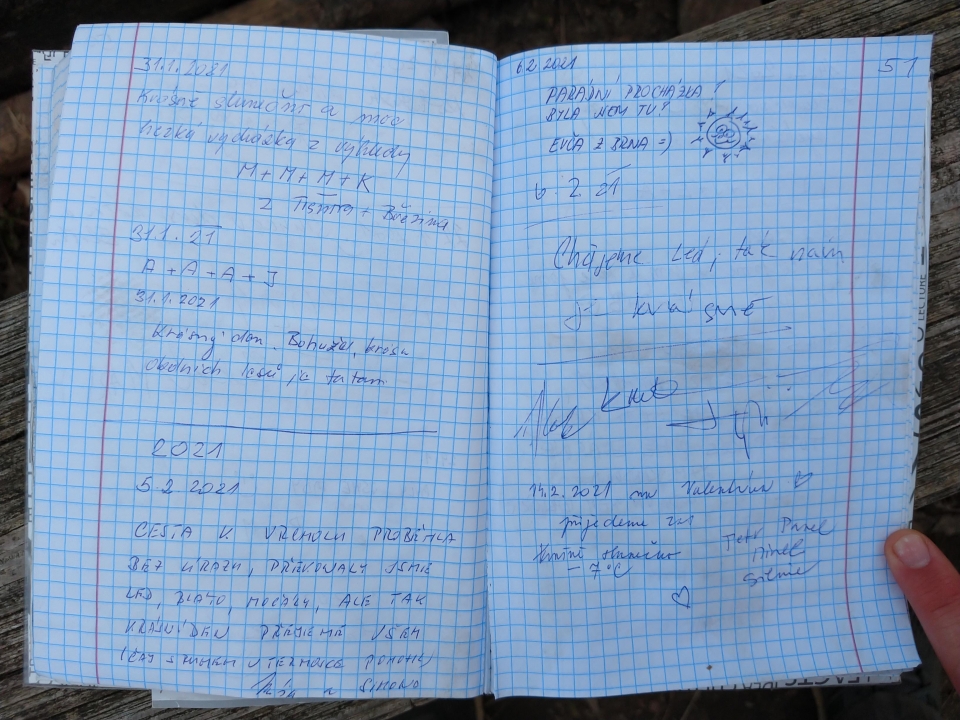 31.1.2021
Krásné slunečno a moc
hezká vycházka z výhledy
M + M + M + K
z Tišnova + Březina
31.1.21
A + A + A + J
31.1.2021
Krásný den. Bohužel, krása
okolních lesů je ta tam
2021
5.2.2021
CESTA K VRCHOLU PROBĚHLA
BEZ ÚRAZU, PŘEKONALY JSME
LED, BLÁTO, MOČÁLY, ALE TAK
KRÁSNÝ DEN PŘEJEME VŠEM
ČAJ S V TERMOSCE POMOHL
A SIMONA
6.2.2021
PARÁDNÍ PROCHÁZKA!
BYLA JSEM TU!
EVČA Z BRNA =)
6.2.21
Chčijeme led, tak nám
je krásně
14.2.2021 na Valentýna
přijedeme zas
slunečno
-7°C
Petr Pavel
51